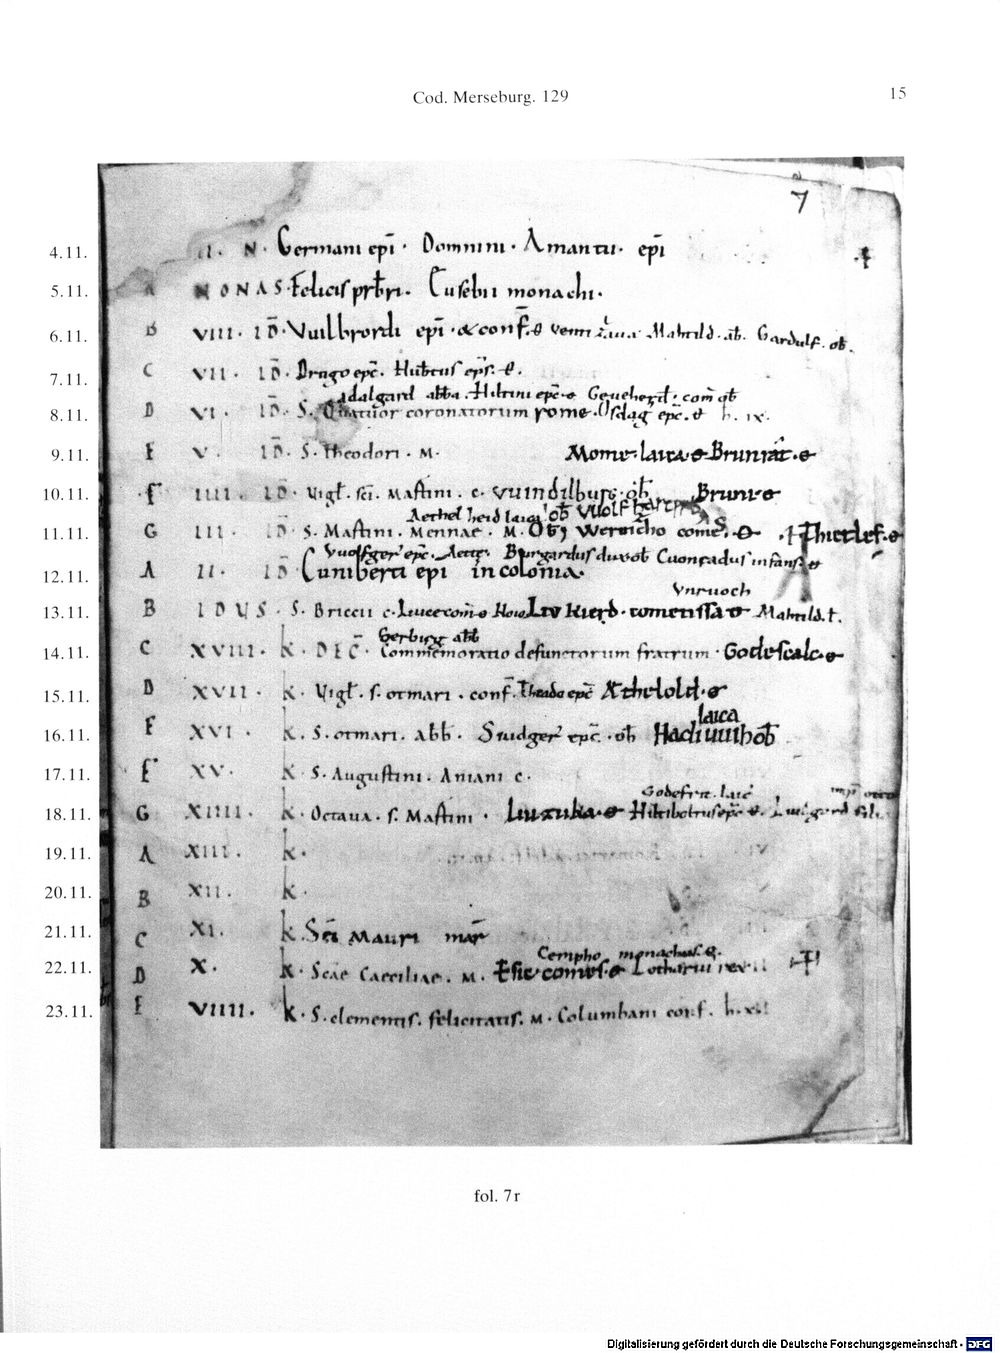 Cod. Merseburg. 129
15
7
4.11. II. N. Germani epi. Domnini. Amantii. epi
5.11. A NONAS. Felicis prbri. Eusebii monachi.
6.11. B VIII. ID. Vuilbrordi epi. & conf. Mahtild. ab. Gardulf. ob.
7.11. C VII. ID. Drago epc. eps.
adalgard abba. Hiltini epc
8.11. D VI. ID. S. Quattuor coronatorum rome. Osdag epc. h. ix.
9.11. E V. ID. S. Theodori. M. Mome. laica Brunrat.
10.11. F IIII. ID. Vigl. sci. Martini. c. vuindilburg. ob Brun
Aethelheid laica ob
11.11. G III. ID. S. Martini. Mennae. M. Ob Werincho comes. Thietlef.
Vuolfger epc. Burgardus dux ob Cuonradus infans.
12.11. A II. ID. Cuniberti epi in colonia.
Vnruoch
13.11. B IDUS. S. Briccii c. Liutkierd. comitissa Mahtild.
Gerburg abb
14.11. C XVIII. K. DEC. Commemoratio defunctorum fratrum. Godescalc.
15.11. D XVII. K. Vigl. s. otmari. conf. Thiado epc Æthelold.
laica
16.11. E XVI. K. S. otmari. abb. Suidger epc. ob Hadiuuih ob
17.11. F XV. K. S. Augustini. Aniani c.
Godefrit. laic
18.11. G XIIII. K. Octava. s. Martini. Liuzuka. Liudgard filia
19.11. A XIII. K.
20.11. B XII. K.
21.11. C XI. K. Sci Mauri mar
Cempho monachus.
22.11. D X. K. Scae Caeciliae. M. Esic comes. Lotharii rex
23.11. E VIIII. K. S. clementis. felicitatis. M. Columbani conf.
fol. 7r
Digitalisierung gefördert durch die Deutsche Forschungsgemeinschaft - DFG